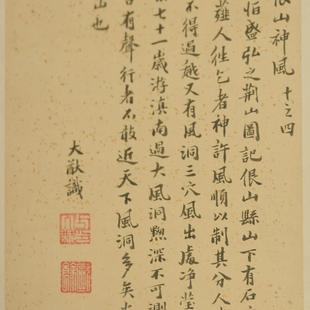 佷山神風 十之四
盛弘之荊山圖記佷山縣山下有石
人往乞者神許風順以制其分人
不得過越又有風洞三穴風出處净瑩
七十一歲游滇南過大風洞黝深不可測
有聲行者不敢近天下風洞多矣
山也
大猷識